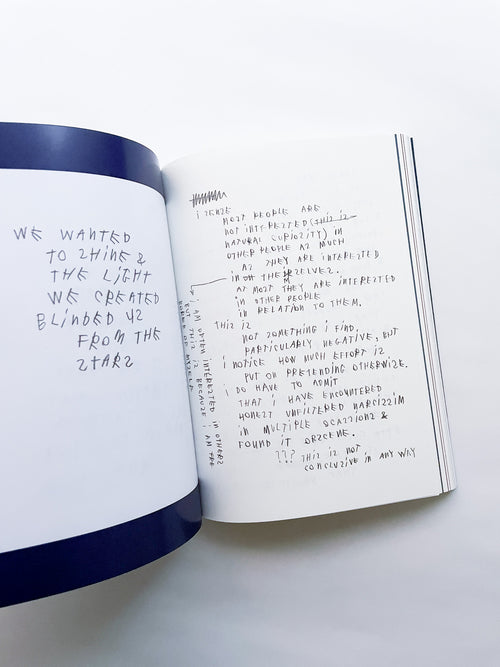 WE WANTED
TO SHINE &
THE LiGHT
WE CREATED
BLinDED US
FROM THE
STARS
i SENSE
MOST PEOPLE ARE
NOT iNTERESTED (THIS IS
NATURAL CURIOSITY) iN
OTHER PEOPLE AS MUCH
AS THEY ARE iNTERESTED
iN THEMSELVES.
AT MOST THEY ARE iNTERESTED
iN OTHER PEOPLE
iN RELATION TO THEM.
THIS iS
NOT SOMETHING i FIND,
PARTICULARLY NEGATIVE, BUT
i NOTICE HOW MUCH EFFORT iS
PUT ON PRETENDING OTHERWISE.
i DO HAVE TO ADMIT
THAT i HAVE ENCOUNTERED
HONEST UNFILTERED NARCISSISM
iN MULTIPLE OCASSIONS &
FOUND iT OBSCENE.
??? THIS iS NOT
CONCLUSIVE iN ANY WAY
i AM OFTEN iNTERESTED iN OTHERS
BUT THIS iS BECAUSE i AM THE
OF MYSELF